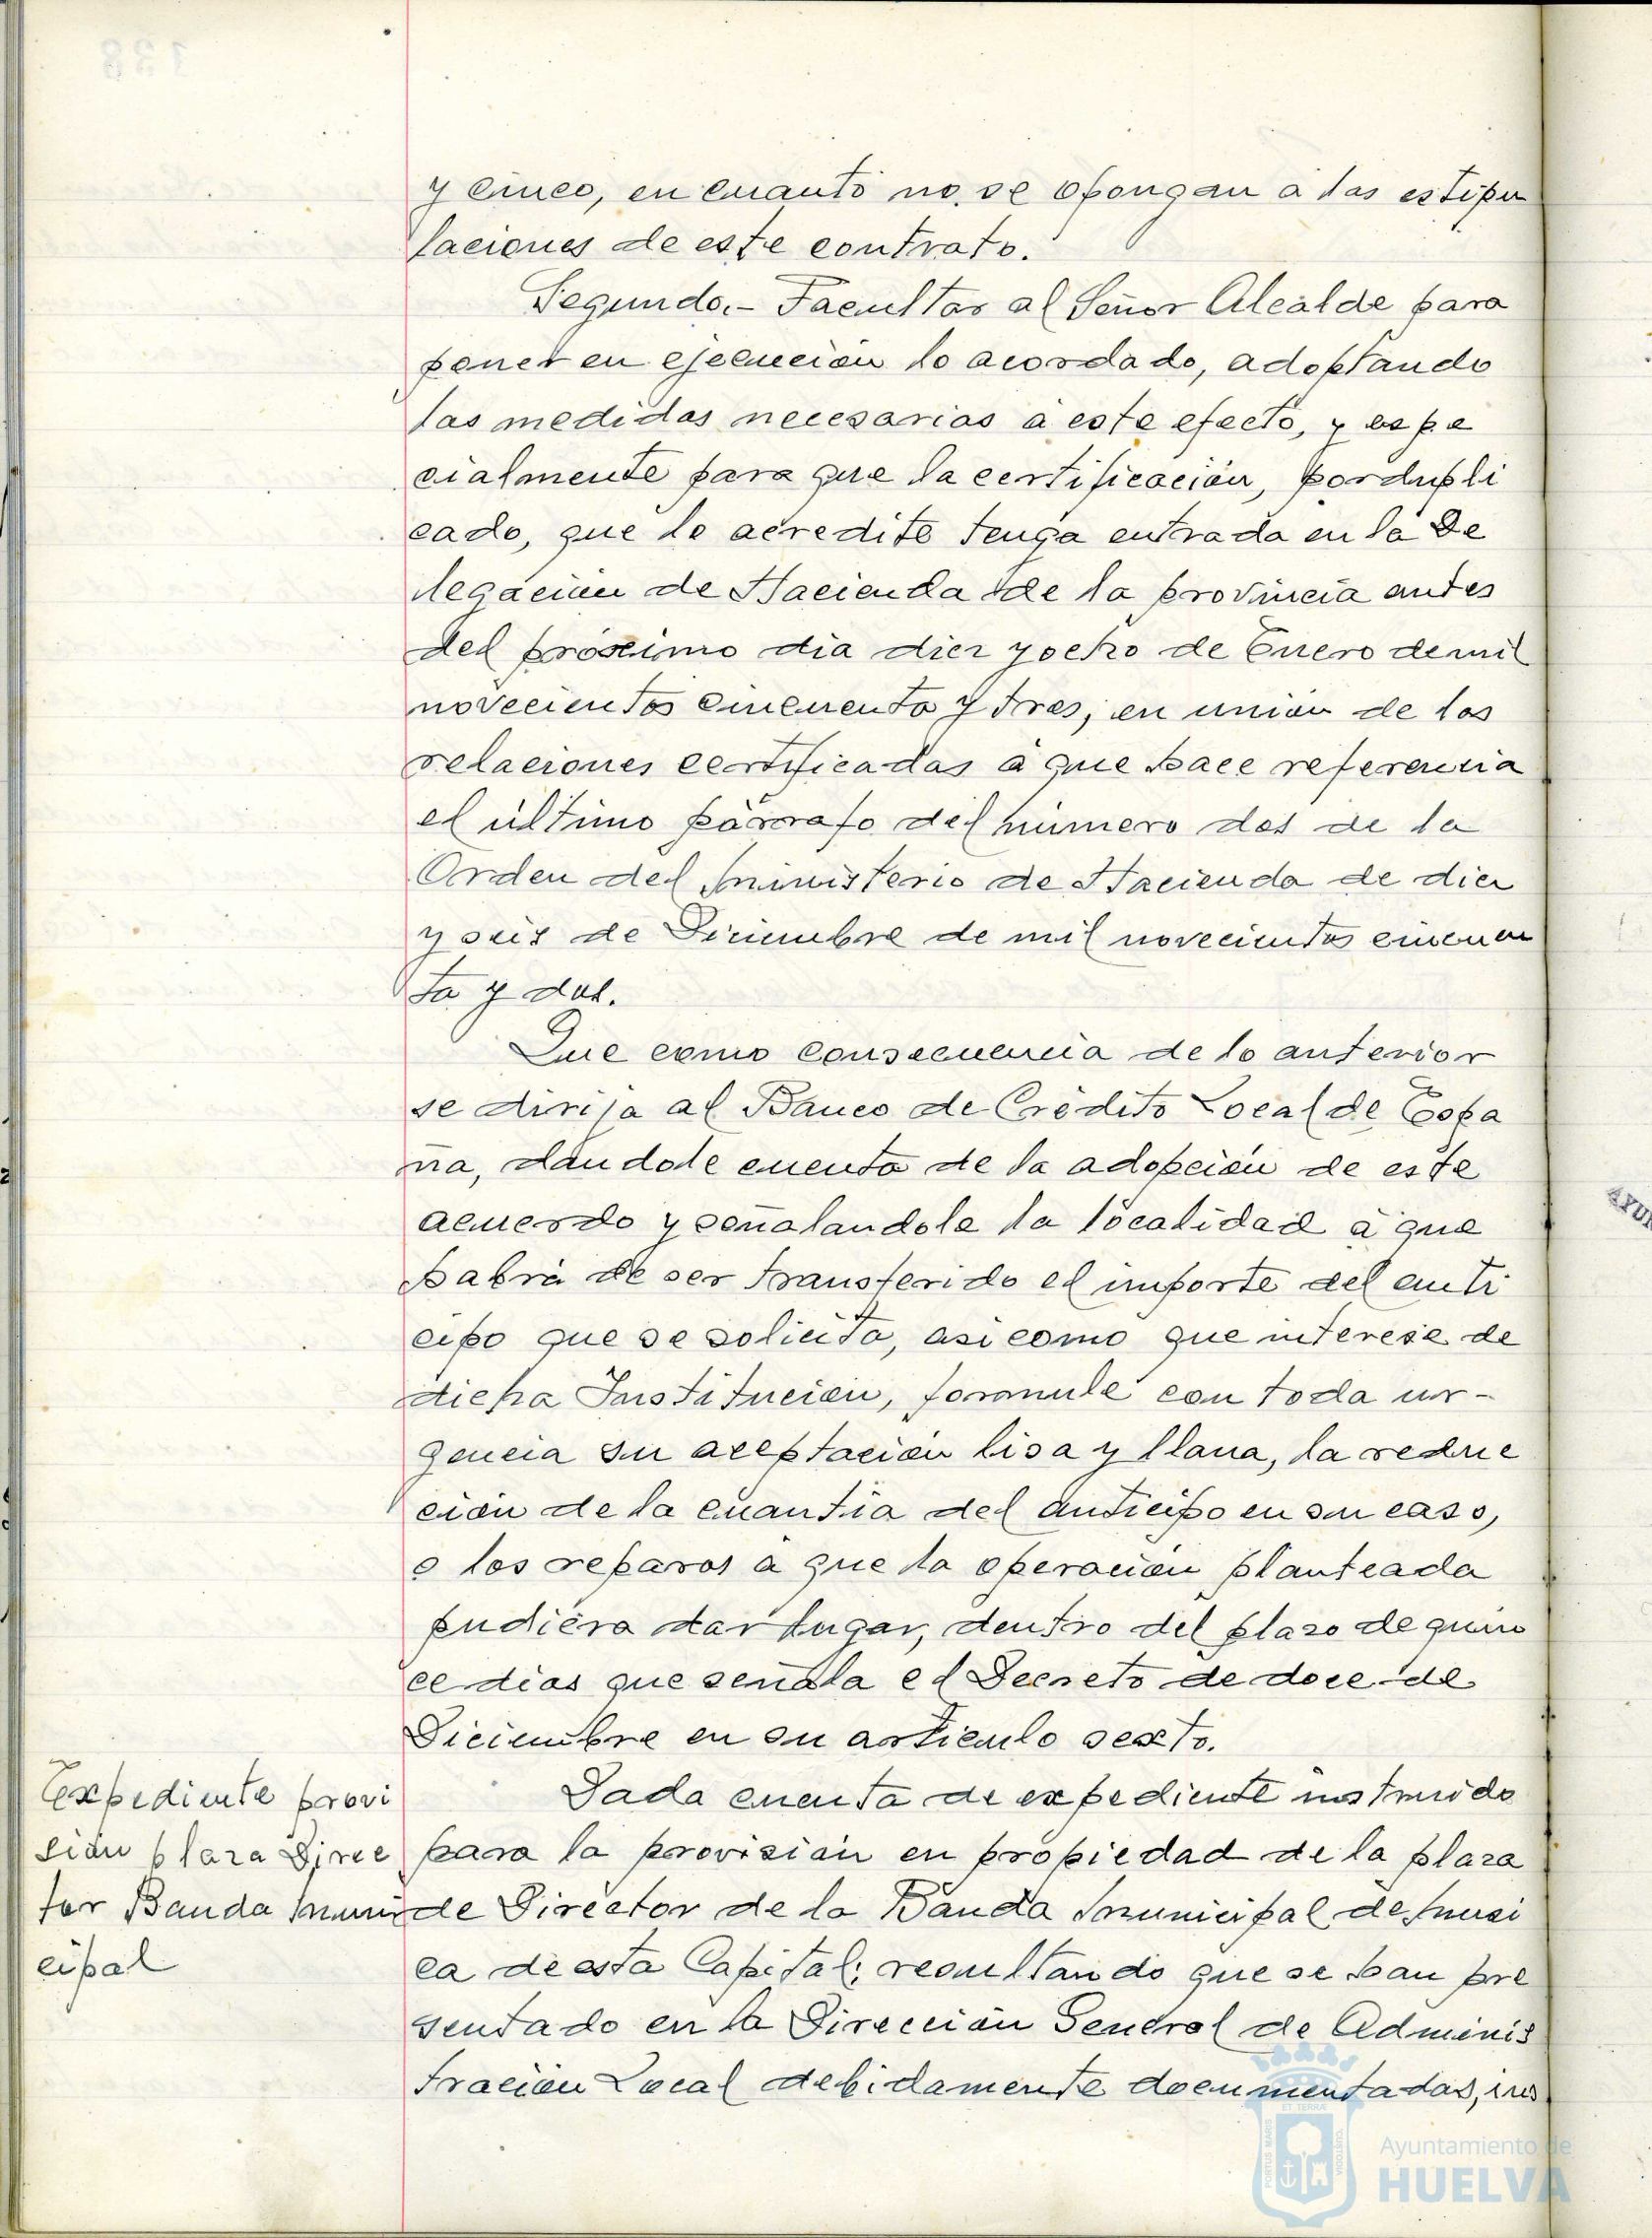 y cinco, en cuanto no se opongan a las estipu
laciones de este contrato.
Segundo.- Facultar al Señor Alcalde para
poner en ejecución lo acordado, adoptando
las medidas necesarias a este efecto, y espe
cialmente para que la certificación, por dupli
cado, que lo acredite tenga entrada en la De
legación de Hacienda de la provincia antes
del próximo día diez y ocho de Enero de mil
novecientos cincuenta y tres, en unión de las
relaciones certificadas a que hace referencia
el último párrafo del número dos de la
Orden del Ministerio de Hacienda de diez
y seis de Diciembre de mil novecientos cincuen
ta y dos.
Que como consecuencia de lo anterior
se dirija al Banco de Crédito Local de Espa
ña, dándole cuenta de la adopción de este
acuerdo y señalandole la localidad a que
habrá de ser transferido el importe del anti
cipo que se solicita, asi como que interese de
dicha Institución, formule con toda ur-
gencia su aceptación lisa y llana, la reduc
ción de la cuantía del anticipo en su caso,
o los reparos a que la operación planteada
pudiera dar lugar, dentro del plazo de quin
ce dias que señala el Decreto de doce de
Diciembre en su articulo sexto.
Expediente provi
sión plaza Direc
tor Banda Muni
cipal
Dada cuenta de expediente instruido
para la provisión en propiedad de la plaza
de Director de la Banda Municipal de Musi
ca de esta Capital; resultando que se han pre
sentado en la Dirección General de Adminis
tración Local debidamente documentadas, ins
PORTUS MARIS
ET TERRA
CUSTODIA
Ayuntamiento de
HUELVA